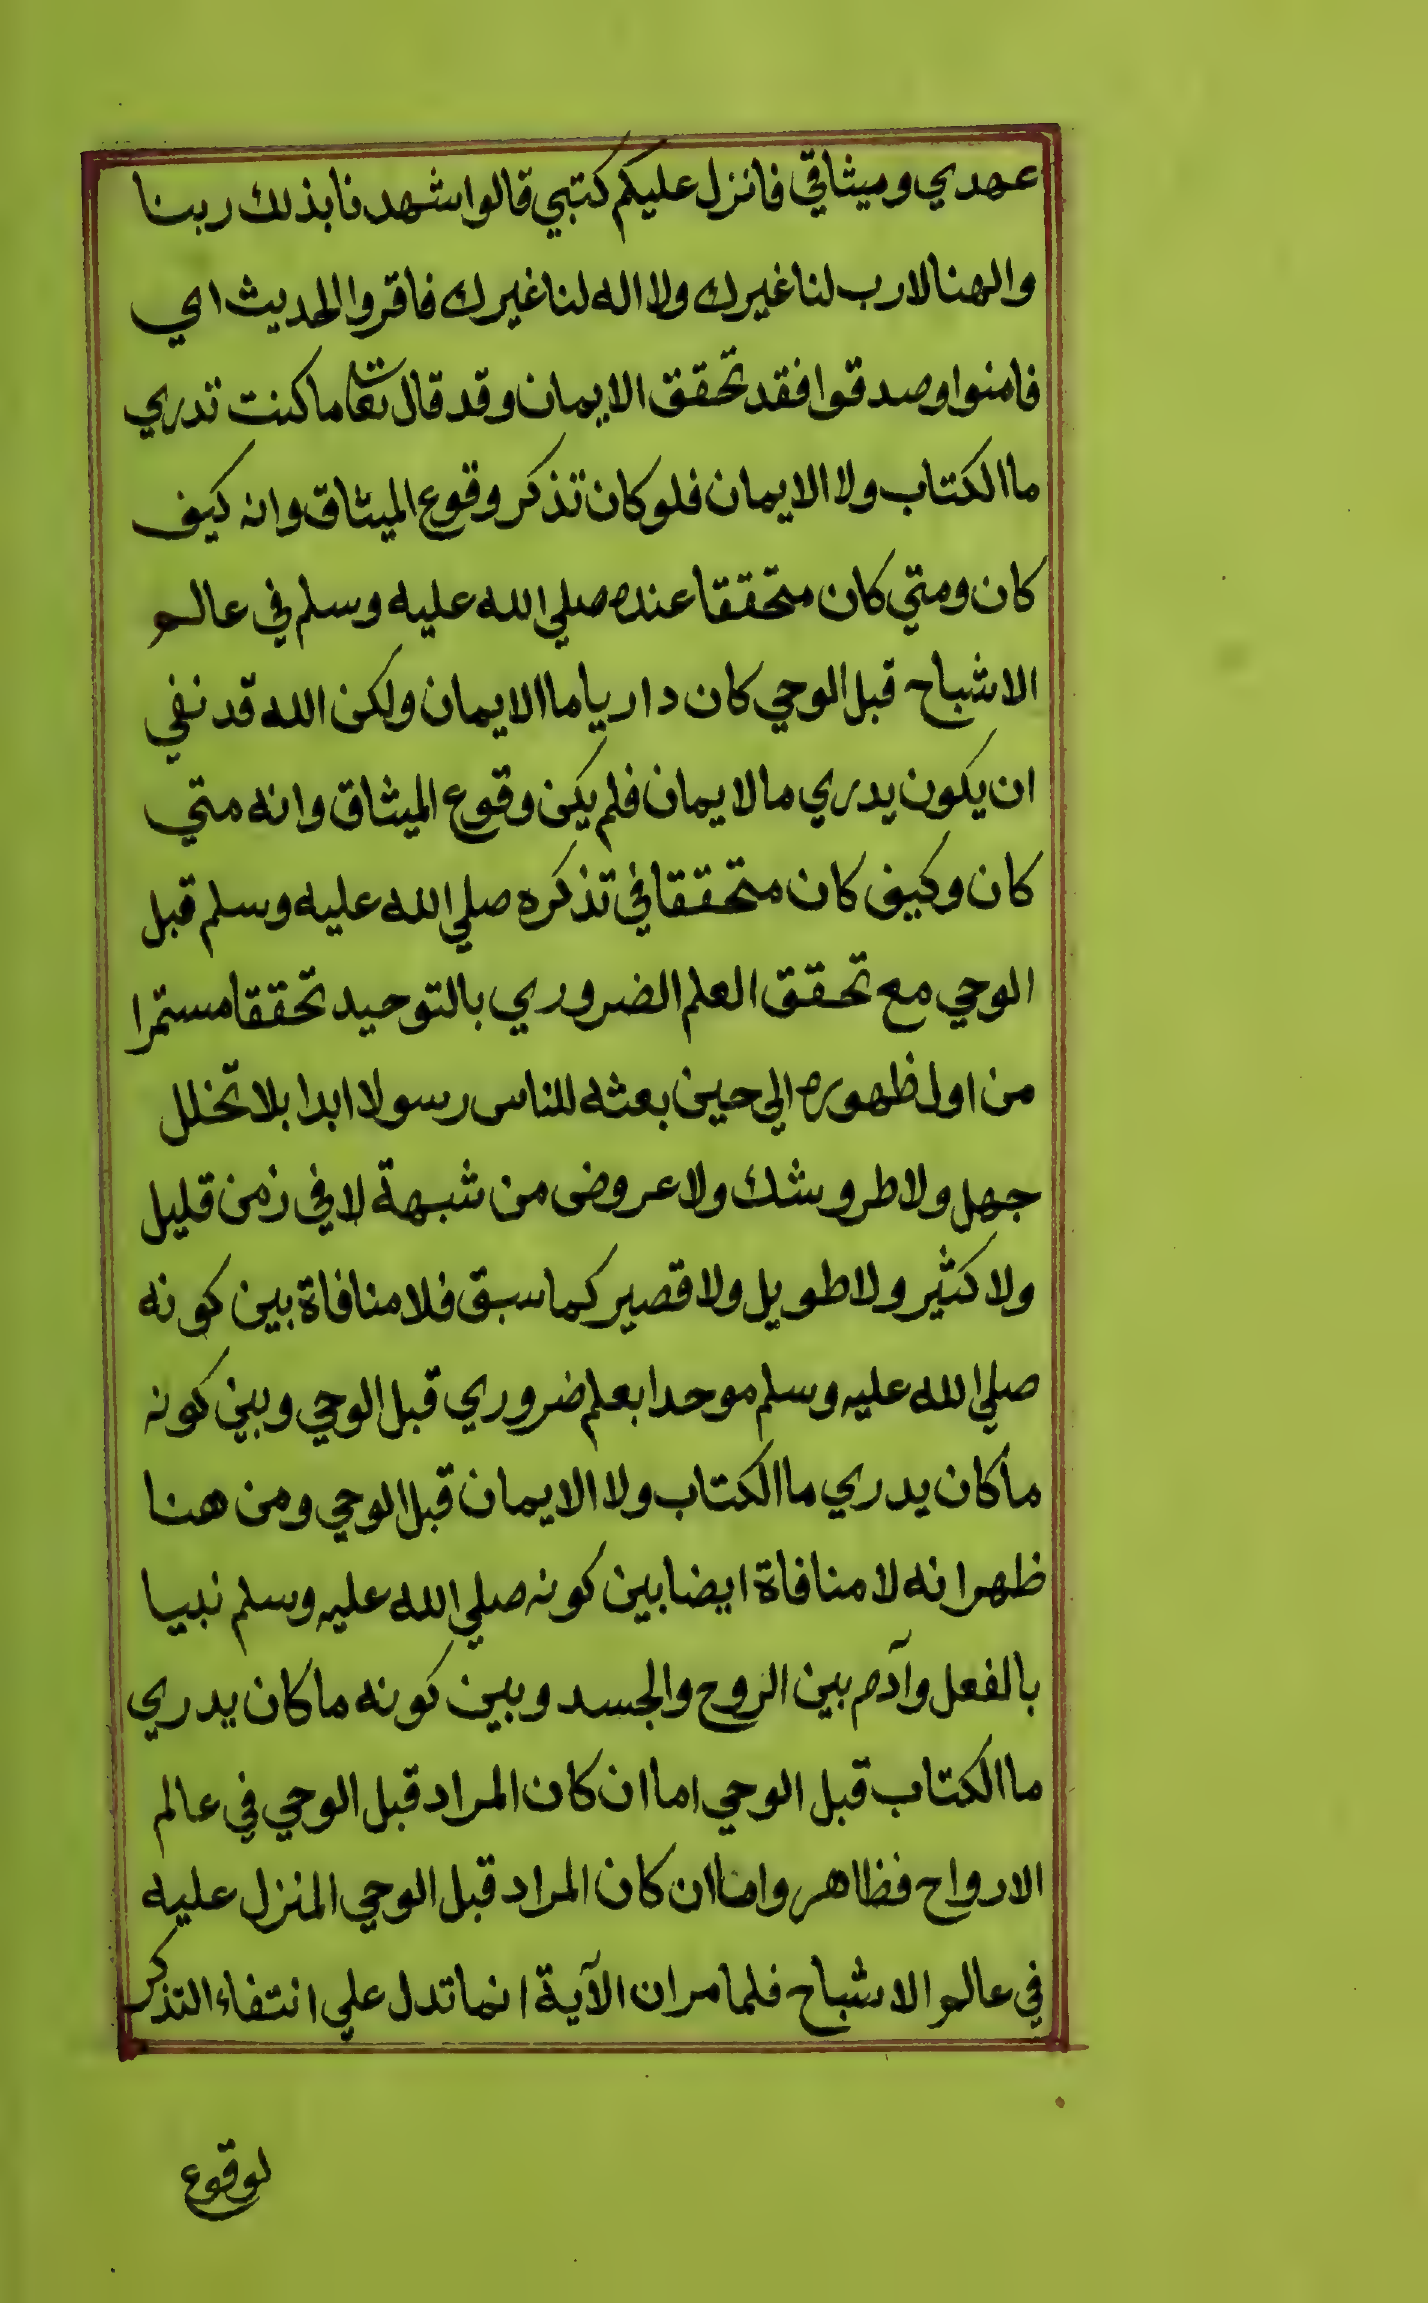 عهدي وميثاقي فانزل عليكم كتبي قالوا شهدنا بذلك ربنا
والهنا لارب لنا غيرك ولا اله لنا غيرك فاقروا الحديث اي
فامنوا وصدقوا فقد تحقق الايمان وقد قال تعا ما كنت تدري
ما الكتاب ولا الايمان فلو كان تذكر وقوع الميثاق وانه كيف
كان ومتي كان متحققا عنده صلي الله عليه وسلم في عالم
الاشباح قبل الوحي كان داريا ما الايمان ولكن الله قد نفي
ان يكون يدري مالايمان فلم يكن وقوع الميثاق وانه متي
كان وكيف كان متحققا في تذكره صلي الله عليه وسلم قبل
الوحي مع تحقق العلم الضروري بالتوحيد تحققا مستمرا
من اول ظهوره الي حين بعثه للناس رسولا ابدا بلا تخلل
جهل ولا طرو شك ولا عروض من شبهة لا في زمن قليل
ولا كثير ولا طويل ولا قصير كما سبق فلا منافاة بين كونه
صلي الله عليه وسلم موحدا بعلم ضروري قبل الوحي وبين كونه
ما كان يدري ما الكتاب ولا الايمان قبل الوحي ومن هنا
ظهر انه لا منافاة ايضا بين كونه صلي الله عليه وسلم نبيا
بالفعل وآدم بين الروح والجسد وبين كونه ما كان يدري
ما الكتاب قبل الوحي اما ان كان المراد قبل الوحي في عالم
الارواح فظاهر واما ان كان المراد قبل الوحي المنزل عليه
في عالم الاشباح فلما مر ان الآية انما تدل علي انتفاء التذكر
لوقوع